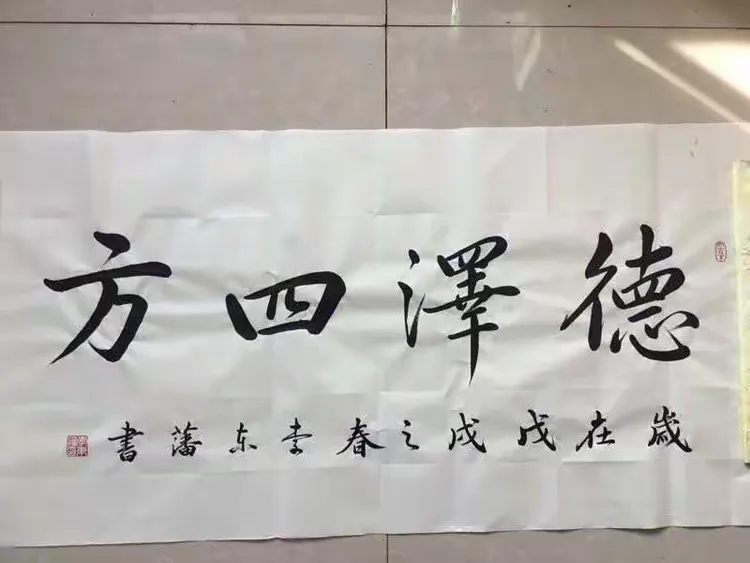 德澤四方
歲在戊戌之春李东藩書